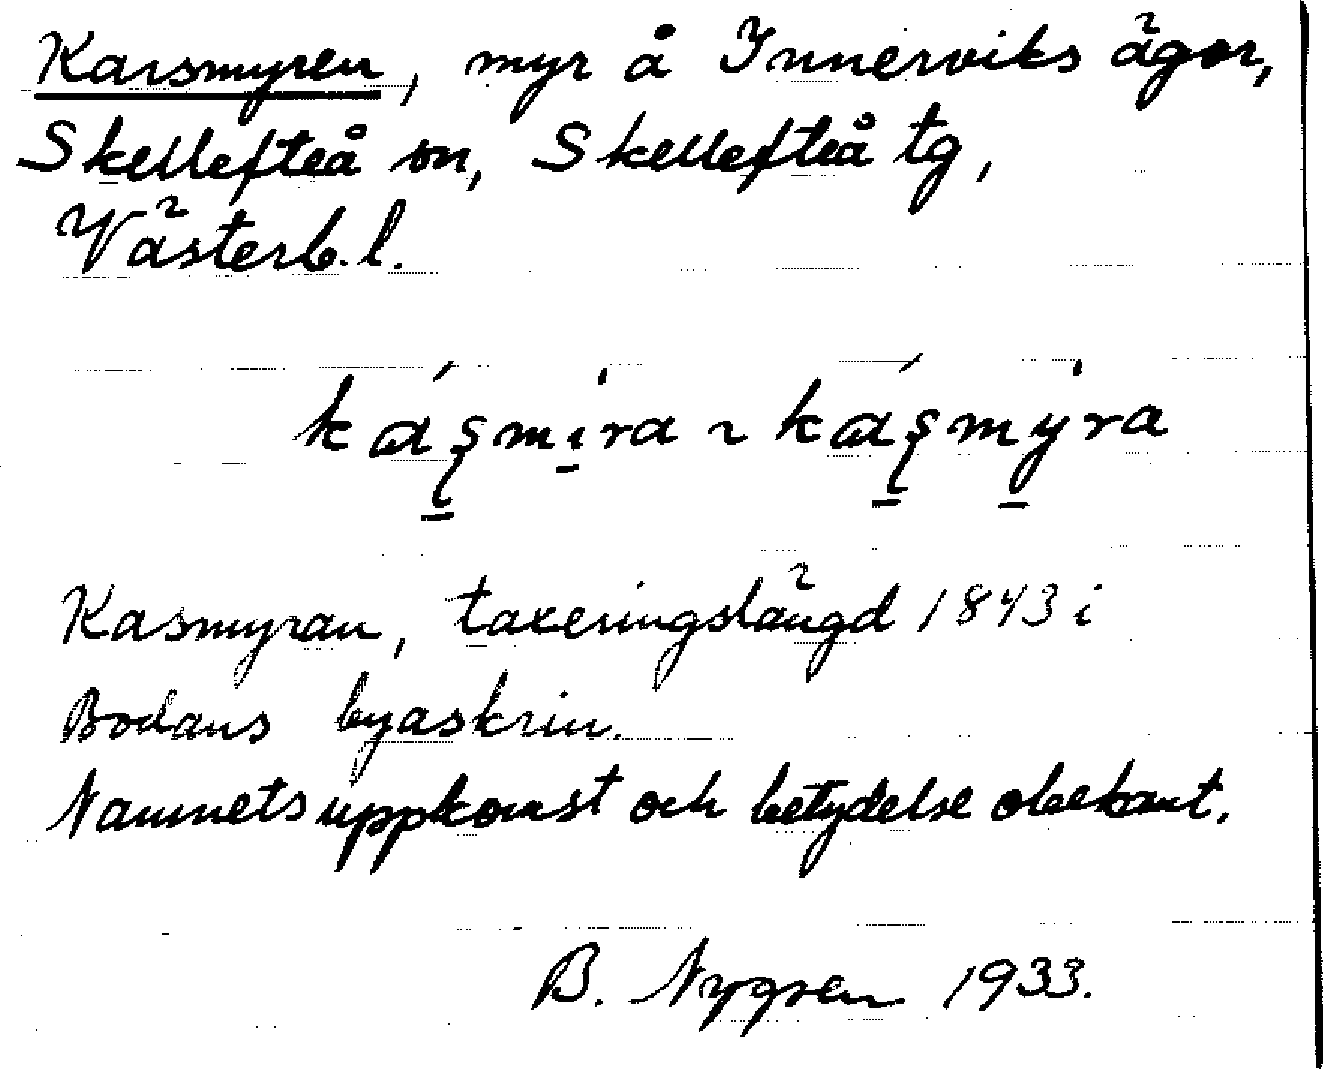 Karsmyren, myr å Innerviks ägor,
Skellefteå sn, Skellefteå tg,
Västerb. l.
káʂmi̱ra ~ káʂmy̱ra
Kasmyran, taxeringslängd 1843 i
Bodans byaskrin.
Namnets uppkomst och betydelse obekant.
B. Nygren 1933.